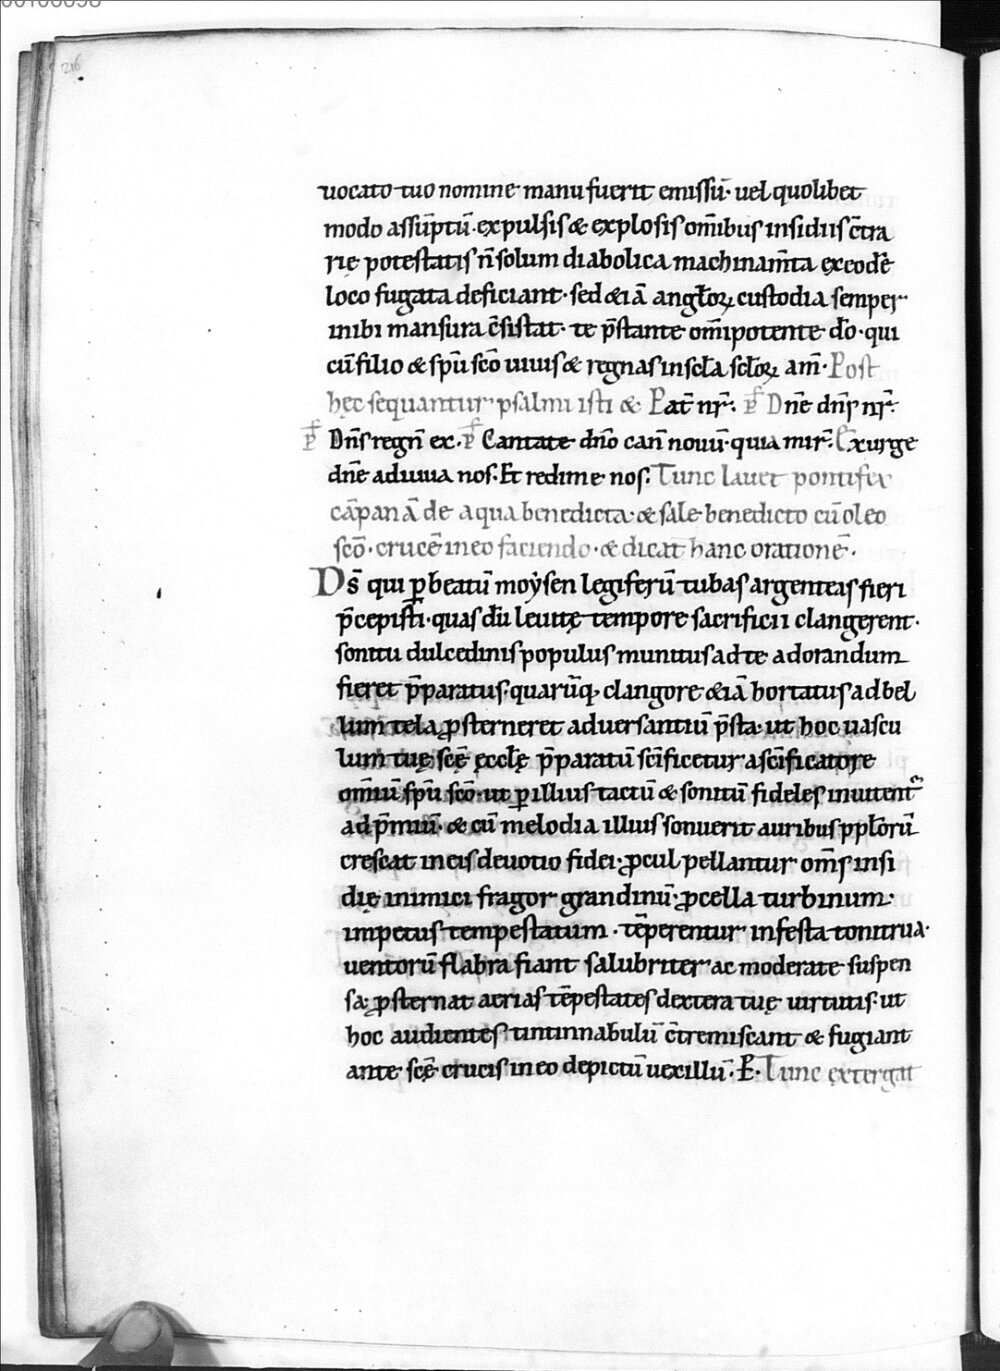 216
uocato tuo nomine manu fuerit emissū· uel quolibet
modo assūptū· expulsis & explosis om̄ibus insidiis c̄tra
rię potestatis n̄ solum diabolica machinam̄ta ęx eodē
loco fugata deficiant· sed &iā anglorꝝ custodia semper
inibi mansura c̄sistat· te p̄stante om̄ipotente d̄o· qui
cū filio & sp̄u sc̄o uiuis & regnas in sc̄la sc̄lorꝝ am̄· Post
hęc sequantur psalmi isti & Pat̄ nr̄. ps̄ Dn̄e dn̄s nr̄·
ps̄ Dn̄s regn̄ ex. ps̄ Cantate dn̄o can̄ nouū· quia mir̄· Exurge
dn̄e adiuua nos· Et redime nos· Tunc lauet pontifex
cāpanā de aqua benedicta· & sale benedicto cū oleo
sc̄o· crucē in eo faciendo· & dicat hanc orationē·
Ds̄ qui ꝑ beatū moẏsen legiferū tubas argenteas fieri
p̄cepisti· quas dū leuitę tempore sacrificii clangerent·
sonitu dulcedinis populus munitus ad te adorandum
fieret p̄paratus· quarūq; clangore &iā hortatus ad bel
lum tela ꝓsterneret aduersantiū p̄sta· ut hoc uascu
lum tuę sc̄ę ęccl̄ę p̄paratū sc̄ificetur a sc̄ificatore
om̄iū sp̄u sc̄o· ut ꝑ illius tactū & sonitū fideles inuitent᷑
ad p̄miū· & cū melodia illius sonuerit auribus pplorū
crescat in eis deuotio fidei· ꝓcul pellantur om̄s insi
dię inimici fragor grandinū· ꝓcella turbinum·
impetus tempestatum· tēperentur infesta tonitrua·
uentorū flabra fiant salubriter ac moderate suspen
sa· ꝓsternat aerias tēpestates dextera tuę uirtutis· ut
hoc audientes tintinnabulū c̄tremiscant & fugiant
ante sc̄ę crucis in eo depictū uexillū· P. Tunc extergat